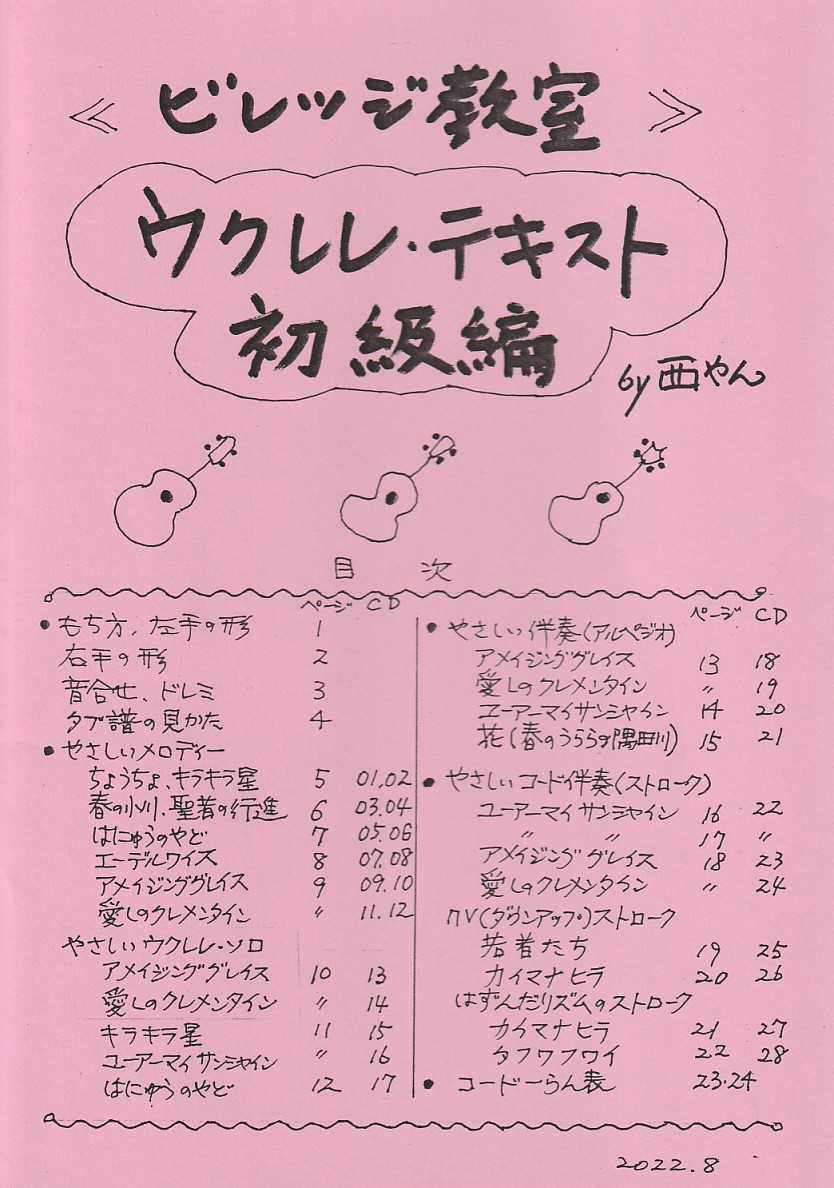 ≪ ビレッジ教室 ≫
ウクレレ・テキスト
初級編
by 西やん
目次
ページ CD
• もち方、左手の形 1
右手の形 2
音合せ、ドレミ 3
タブ譜の見かた 4
• やさしいメロディー
ちょうちょ、キラキラ星 5 01.02
春の小川、聖者の行進 6 03.04
はにゅうのやど 7 05.06
エーデルワイス 8 07.08
アメイジンググレイス 9 09.10
愛しのクレメンタイン 〃 11.12
やさしいウクレレ・ソロ
アメイジンググレイス 10 13
愛しのクレメンタイン 〃 14
キラキラ星 11 15
ユーアーマイサンシャイン 〃 16
はにゅうのやど 12 17
ページ CD
• やさしい伴奏(アルペジオ)
アメイジンググレイス 13 18
愛しのクレメンタイン 〃 19
ユーアーマイサンシャイン 14 20
花(春のうららの隅田川) 15 21
• やさしいコード伴奏(ストローク)
ユーアーマイサンシャイン 16 22
〃 〃 17 〃
アメイジンググレイス 18 23
愛しのクレメンタイン 〃 24
ΠV(ダウンアップ)ストローク
若者たち 19 25
カイマナヒラ 20 26
はずんだリズムのストローク
カイマナヒラ 21 27
タフワフワイ 22 28
• コード一らん表 23・24
2022.8